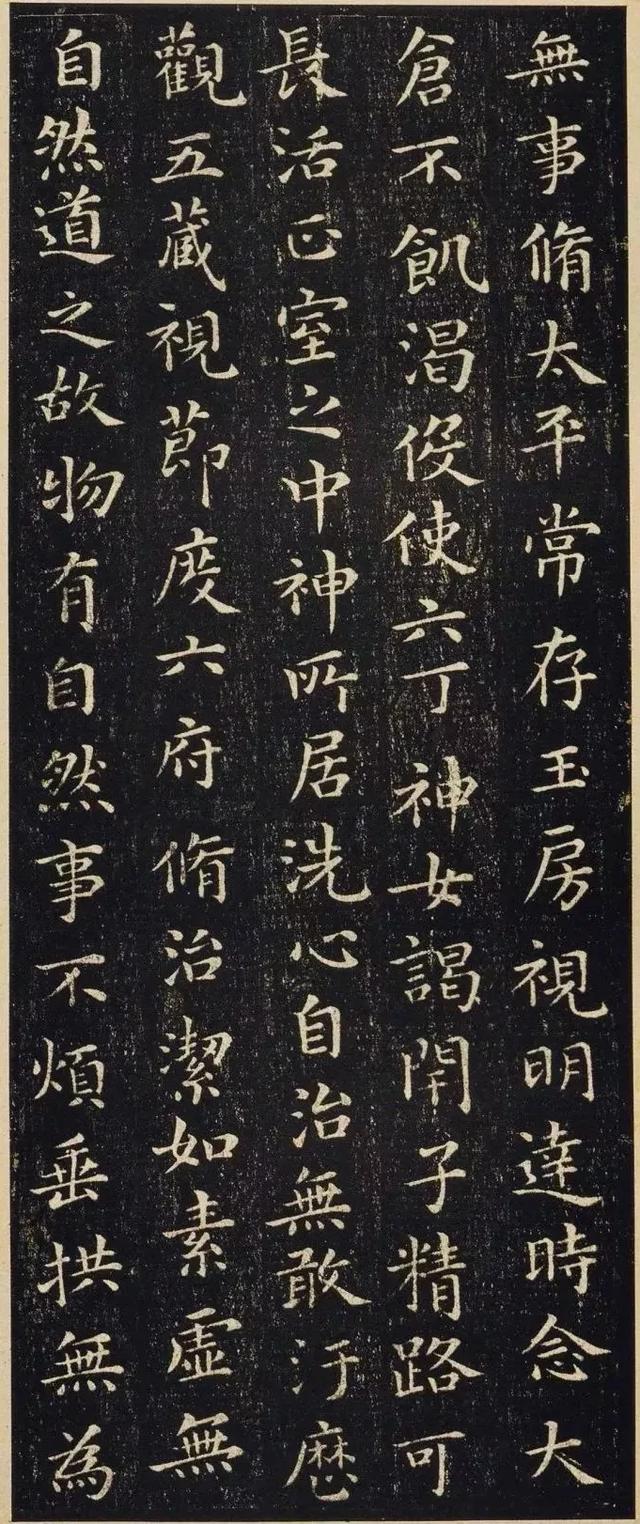 無事脩太平常存玉房視明達時念大
倉不飢渴伇使六丁神女謁閇子精路可
長活正室之中神所居洗心自治無敢汙
觀五藏視節度六府脩治潔如素虛無
自然道之故物有自然事不煩垂拱無為